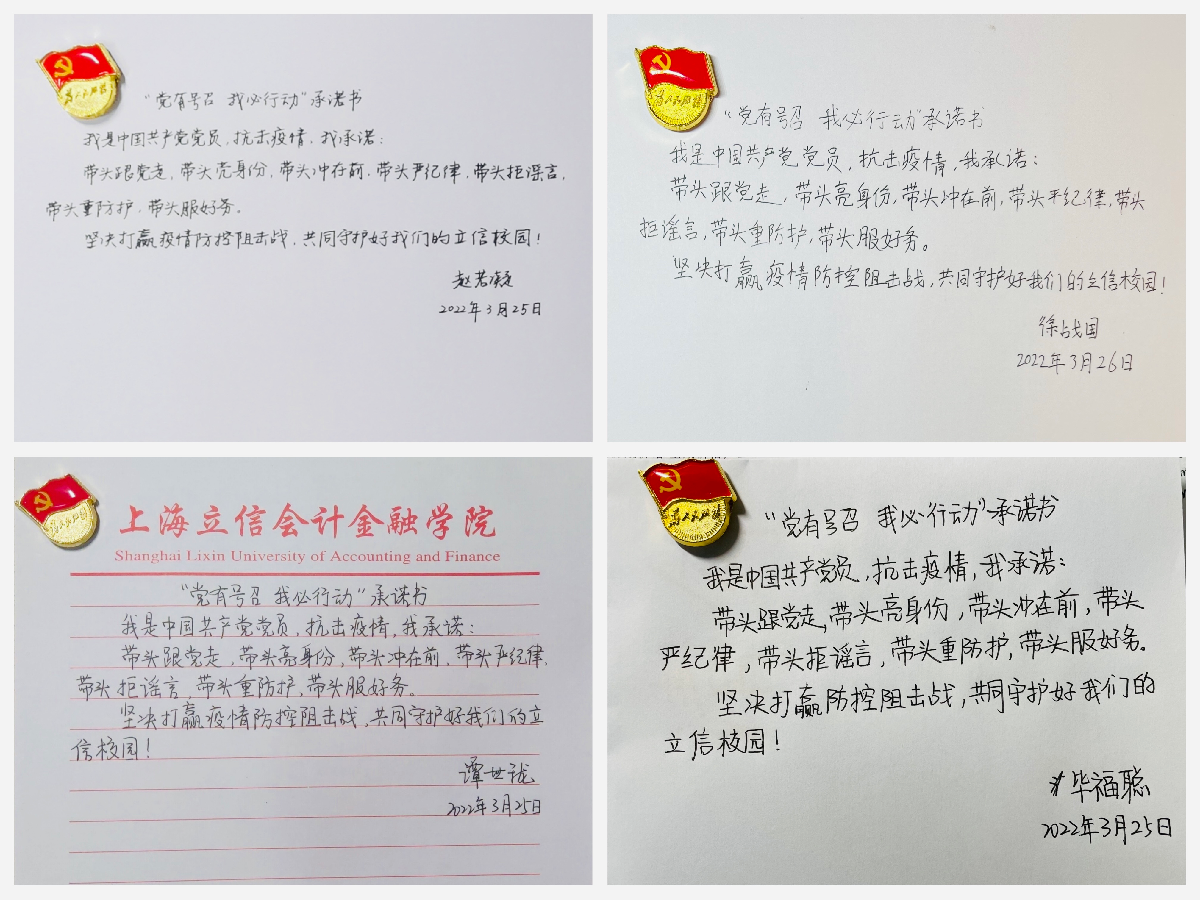 为人民服务
“党有号召 我必行动”承诺书
我是中国共产党党员,抗击疫情,我承诺:
带头跟党走,带头亮身份,带头冲在前,带头严纪律,带头拒谣言,
带头重防护,带头服好务。
坚决打赢疫情防控阻击战,共同守护好我们的立信校园!
赵若凝
2022年3月25日
为人民服务
“党有号召 我必行动”承诺书
我是中国共产党党员,抗击疫情,我承诺:
带头跟党走,带头亮身份,带头冲在前,带头严纪律,带头
拒谣言,带头重防护,带头服好务。
坚决打赢疫情防控阻击战,共同守护好我们的立信校园!
徐战国
2022年3月26日
为人民服务
上海立信会计金融学院
Shanghai Lixin University of Accounting and Finance
“党有号召 我必行动”承诺书
我是中国共产党党员,抗击疫情,我承诺:
带头跟党走,带头亮身份,带头冲在前,带头严纪律,
带头拒谣言,带头重防护,带头服好务。
坚决打赢疫情防控阻击战,共同守护好我们的立
信校园!
谭世珑
2022年3月25日
为人民服务
“党有号召 我必行动”承诺书
我是中国共产党员,抗击疫情,我承诺:
带头跟党走,带头亮身份,带头冲在前,带头
严纪律,带头拒谣言,带头重防护,带头服好务。
坚决打赢防控阻击战,共同守护好我们的
立信校园!
毕福聪
2022年3月25日